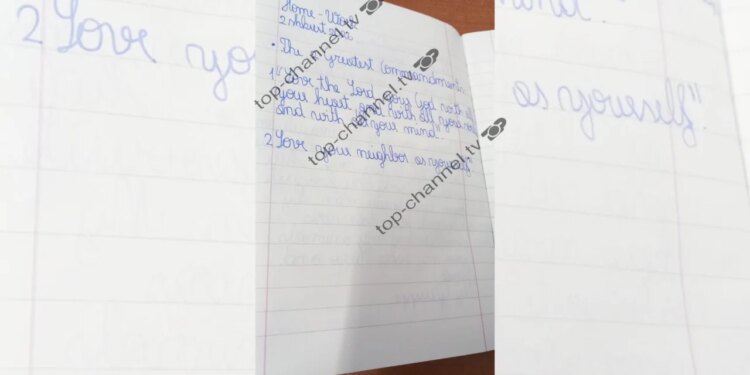 Home - Work
2 shkurt 2022
• The 2 greatest Commandments
1 "Love the Lord your God with all
your heart and with all your
and with all you mind.
2 Love you neighbor as yourself"
top-channel.tv
top-channel.tv
top-channel.tv
top-channel.tv
2 Love yo
as yourself".